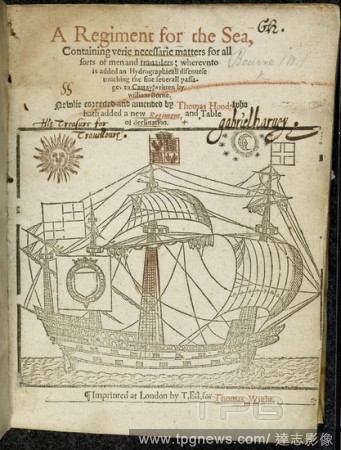 GH.
A Regiment for the Sea,
Containing verie necessarie matters for all
sorts of men and trauailers: wherevnto
is added an Hydrographicall discourse
touching the fiue seuerall passa-
ges to Cattay, written by
william Borne.
Newlie corrected and amended by Thomas Hood, who
hath added a new Regiment, and Table
of declination.
Bourne
His Treasur for
Trauilours.
gabrielharuey
¶ Imprinted at London by T. Est, for Thomas Wight.
TPG
www.tpgnews.com/ 達志影像